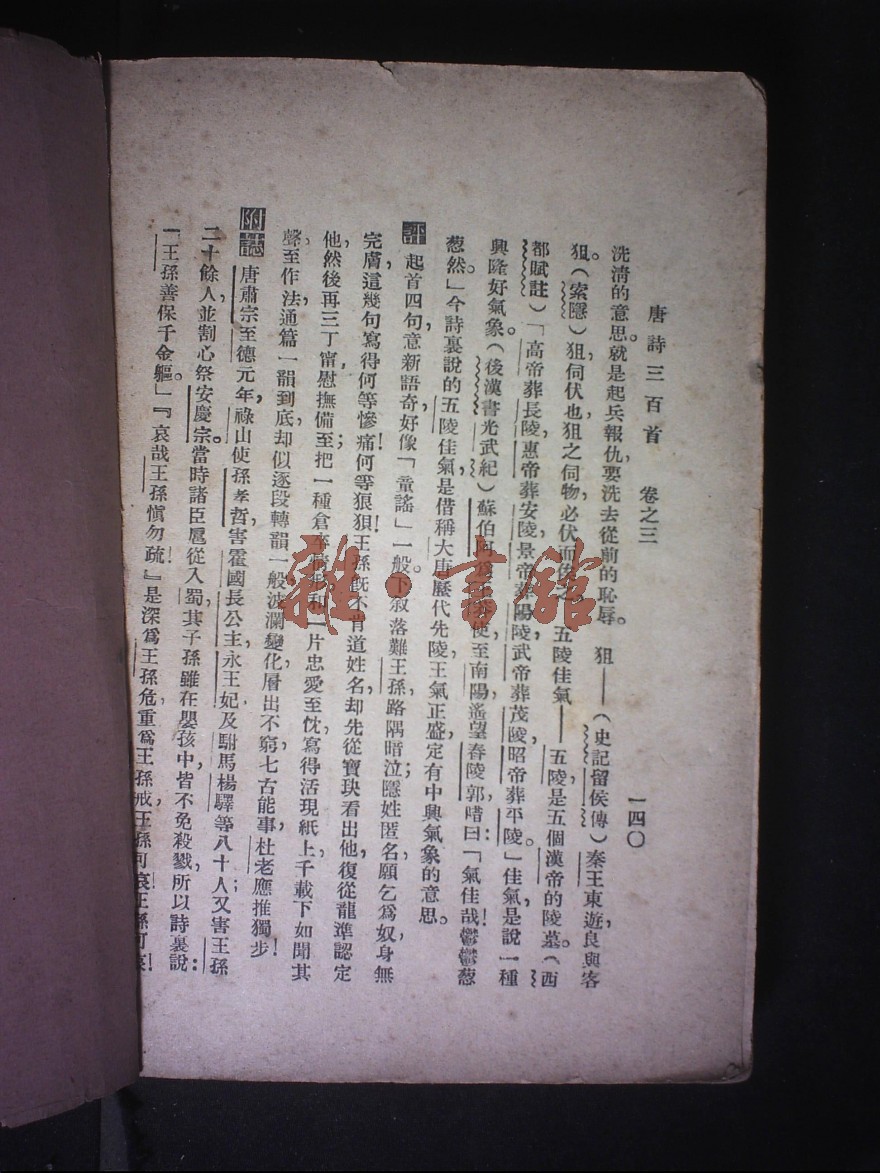 唐詩三百首　卷之三　一四〇
洗清的意思。就是起兵報仇，要洗去從前的恥辱。　狙——（史記留侯傳）秦王東遊，良與客
狙。（索隱）狙，伺伏也，狙之伺物，必伏而　五陵佳氣——五陵是五個漢帝的陵墓。（西
都賦註）「高帝葬長陵，惠帝葬安陵，景帝葬陽陵，武帝葬茂陵，昭帝葬平陵。」佳氣，是說一種
興隆好氣象。（後漢書光武紀）蘇伯阿爲　使至南陽，遙望舂陵郭，唶曰：「氣佳哉！鬱鬱葱
葱然。」今詩裏說的五陵佳氣，是借稱大唐歷代先陵，王氣正盛，定有中興氣象的意思。
評　起首四句，意新語奇，好像「童謠」一般。下敘落難王孫，路隅暗泣；隱姓匿名，願乞爲奴，身無
完膚，這幾句寫得何等慘痛！何等狼狽！王孫既不肯道姓名，却先從寶玦看出他，復從龍準認定
他，然後再三丁甯，慰撫備至；把一種倉卒情形，和一片忠愛至忱，寫得活現紙上，千載下如聞其
聲。至作法，通篇一韻到底，却似逐段轉韻一般，波瀾變化，層出不窮，七古能事，杜老應推獨步！
附誌　唐肅宗至德元年，祿山使孫孝哲害霍國長公主，永王妃，及駙馬楊驛等八十人；又害王孫
二十餘人，並割心祭安慶宗。當時諸臣扈從入蜀，其子孫雖在嬰孩中，皆不免殺戮，所以詩裏說：
「王孫善保千金軀。」『哀哉王孫愼勿疏！』是深爲王孫危，重爲王孫戒，王孫可哀！王孫可哀！
雜·書館